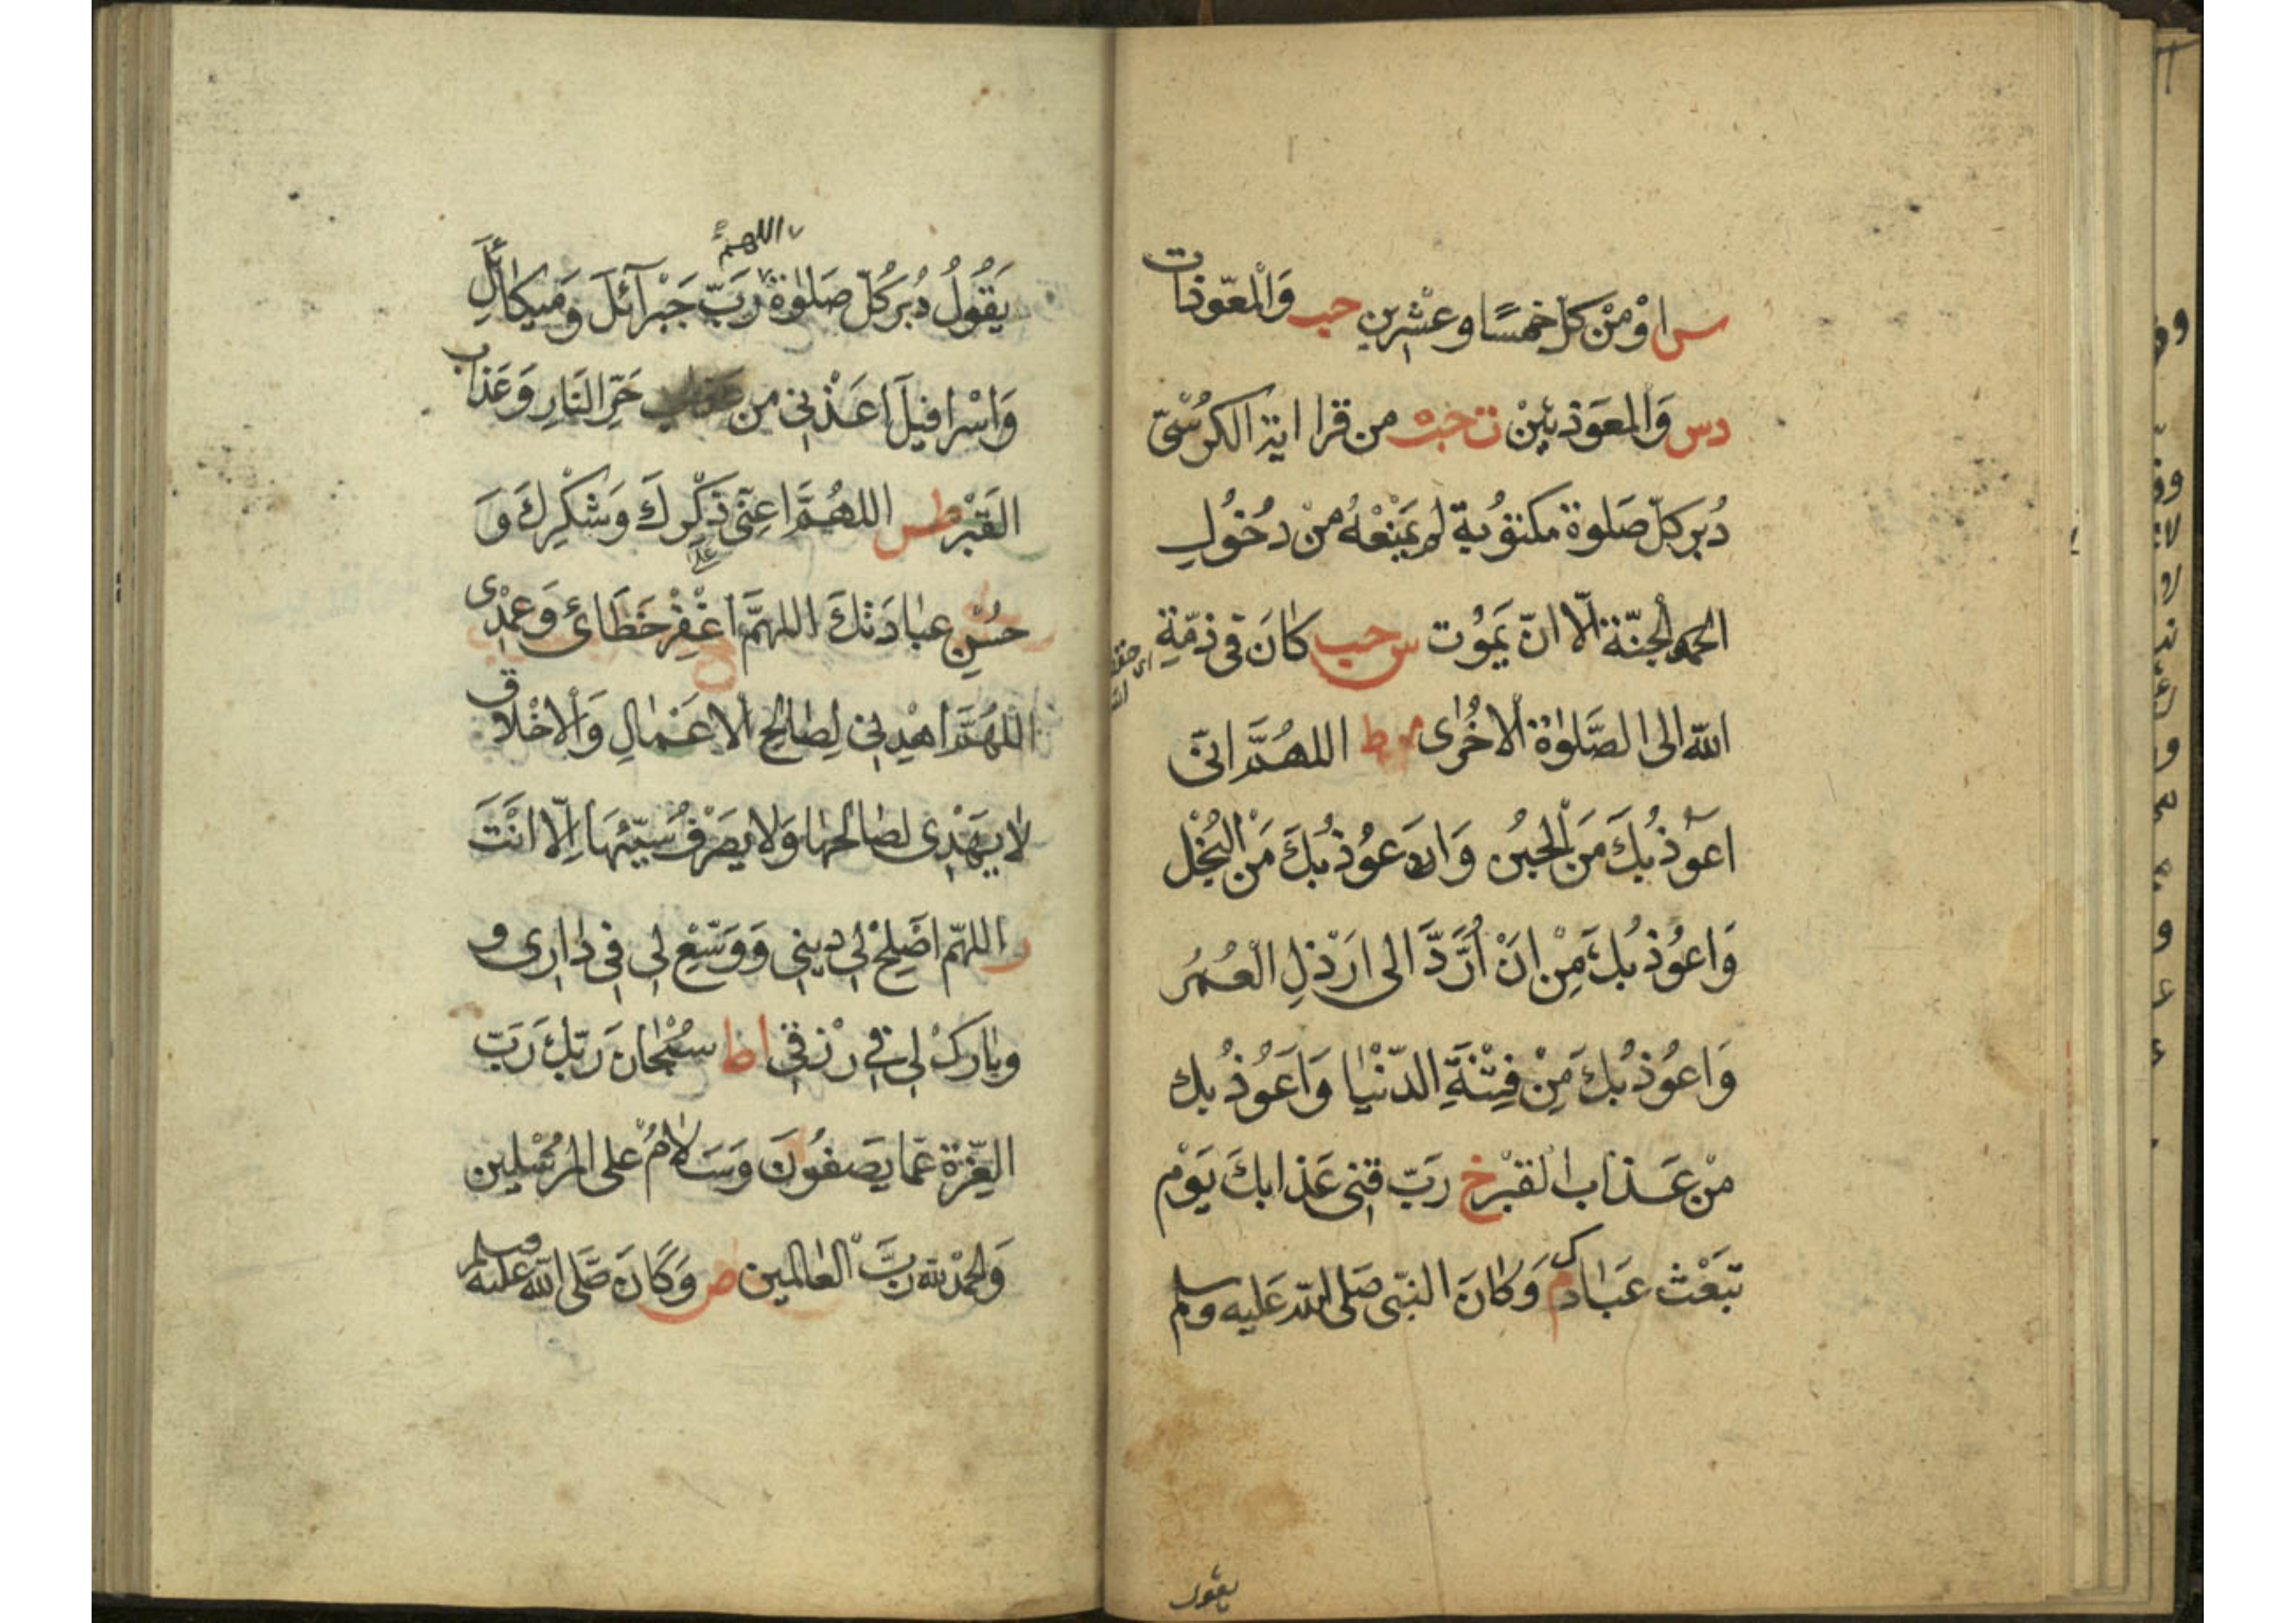 س اوْ مِنْ كلّ خمسًا وعشرين حب وَالْمعّوذات
دس وَالمعَوذتَيْن ت حب من قرا اية الكرُسْىّ
دُبر كلّ صَلوة مكتوُبة لم يَمْنَعْهُ منْ دخُولِ
الجنّة الّا انّ يَموُت س حب كَانَ فى ذمّةِ
الله الى الصَّلوٰة الاخُرٰى ط اللهُمَّ انّى
اعَوُذ بُكَ مَنَ الْجبُن وَاعوُذ بُكَ مَنْ الْبُخْل
وَاعوُذ بُكَ مِنْ انَ اُرَدَّ الى ارَذلِ الْعُمُر
وَاعوُذ بُكَ مِنْ فِتْنَةِ الدّنْيٰا وَاَعَوُذ بُك
منْ عَذاب الْقبْر خ رَبّ قنى عَذابكَ يَوْم
تَبعَْث عبَادك م وَكانَ النبّى صَلى اللّه عَليه وسلم
يقول
اللهمّ
يَقُولُ دُبرَ كُلّ صَلوٰة رَبّ جَبْرآئلَ وَميكائَل
وَاسْرافيلَ اعَذْنى من حَرّ النَارِ وَعَذاب
القَبْر طس اللهُمَّ اعِنّى ذكْرِكَ وَشكْرِكَ وَ
على
حُسْنِ عبٰادَتكَ اللهمَّ اغْفِرْ خَطَائ وَعمْدى
اللهُمَّ اهْدِنى لِصَالِحِ الاعَمٰالِ وَالاخْلاق
لا يهَدْى لصٰالحهٰا وَلا يصَرْفُ سَيّئهَا اِلّا انَتَْ
ر اللهمّ اصْلِحْ لى دينى وَوَسّعْ لى فى دارى و
وبٰاركْ لى فى رزْقى اط سبُْحٰانَ رَبّكَ رَبّ
العِزّة عَمّا يَصفُونَ وَسَلامُ على المُرسْلين
وَالحمْد للّه رَبَّ الْعٰالمين ص وَكَانَ صَلّى اللّه عليه وسلم